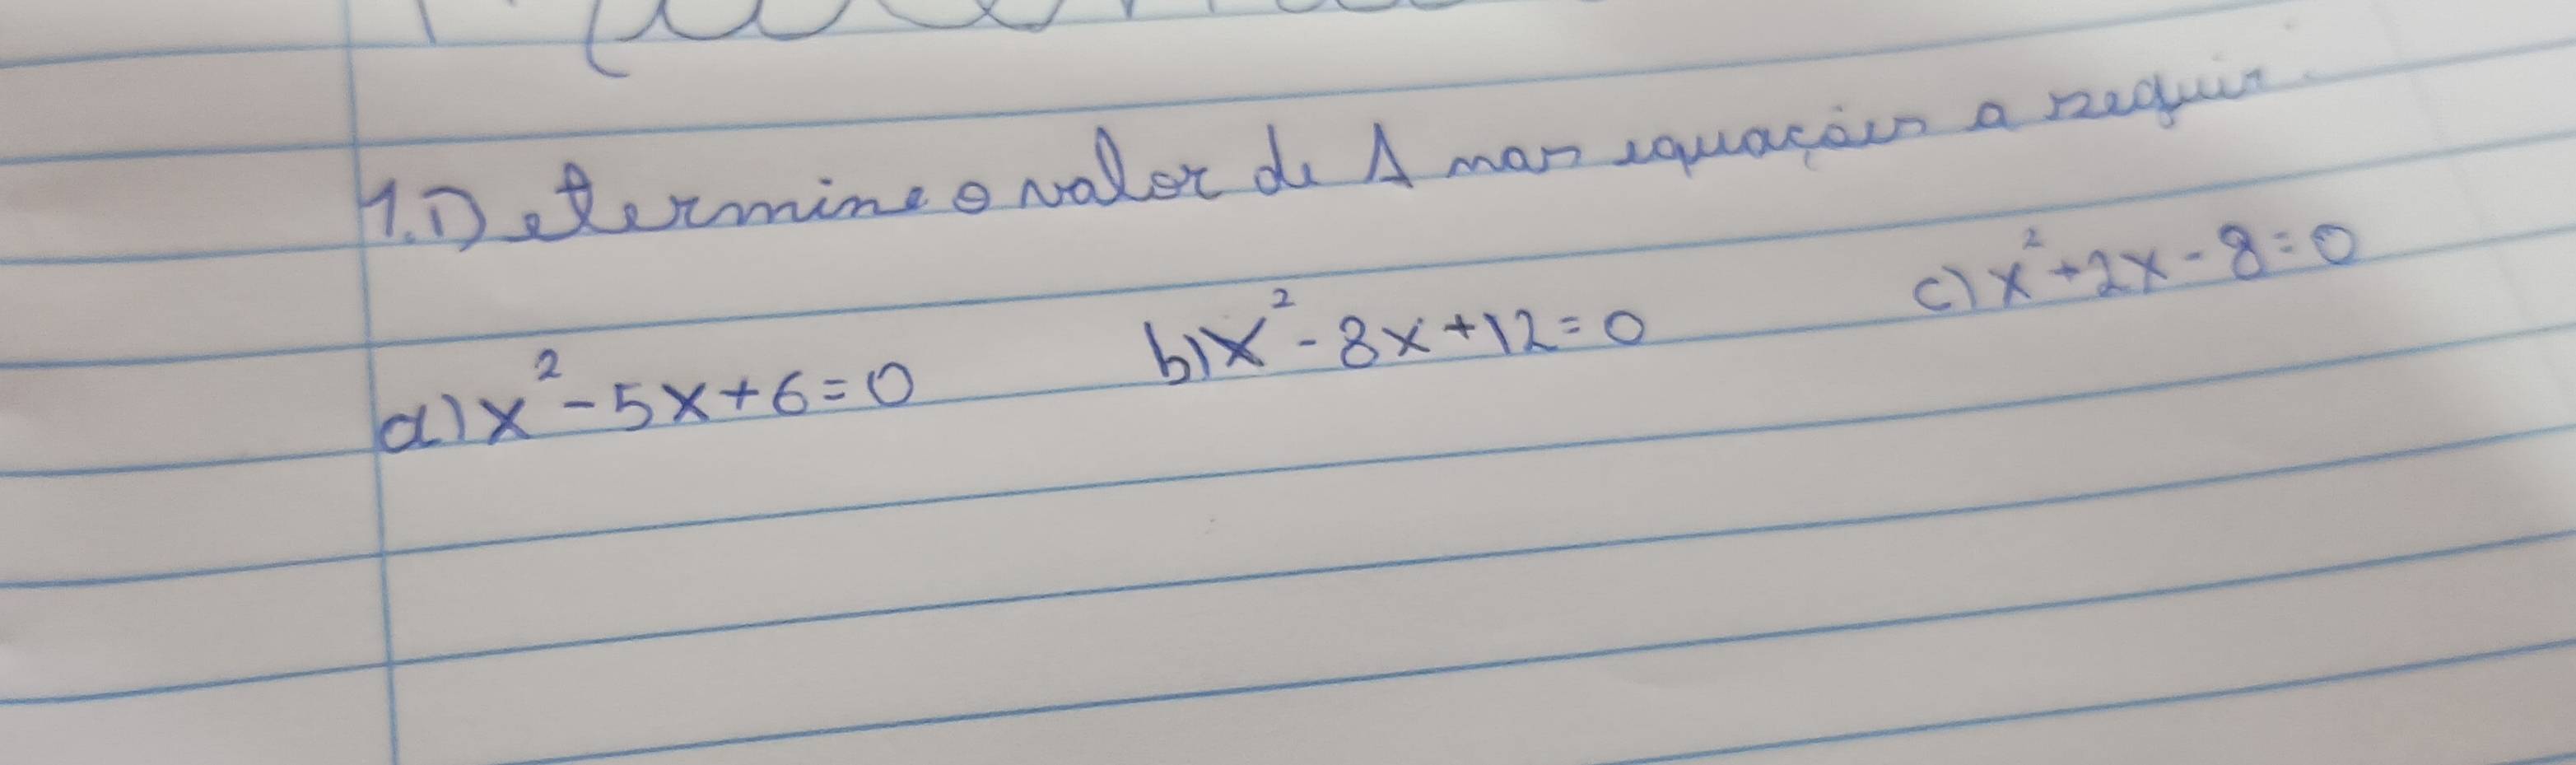 1. Determine o valor de Δ nas equações a seguir.
a) x² - 5x + 6 = 0 b) x² - 8x + 12 = 0 c) x² + 2x - 8 = 0